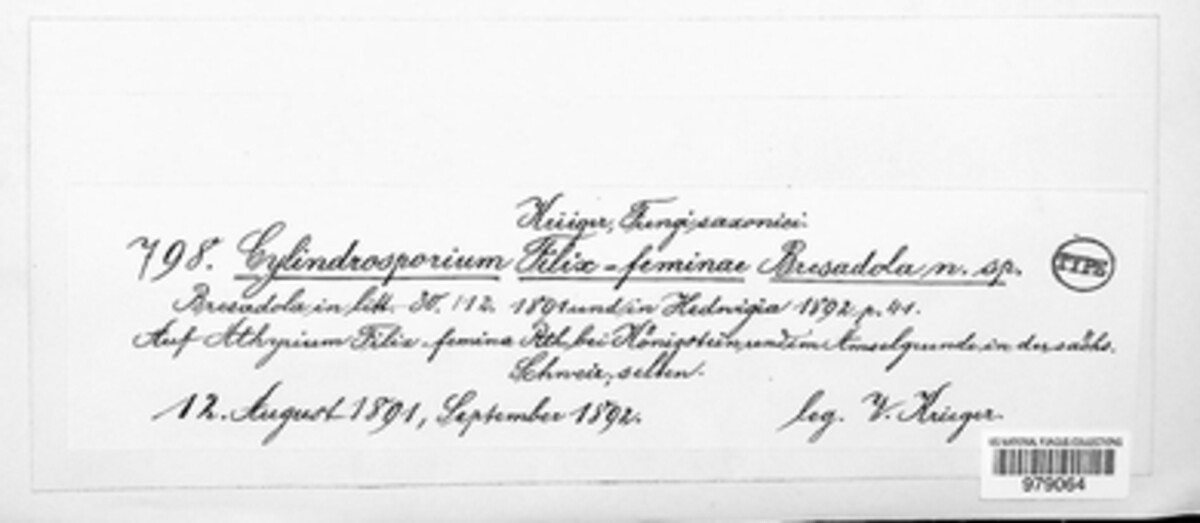 Krieger, Fungi saxonici.
798. Cylindrosporium Filix-feminae Bresadola n. sp.
TYPE
Bresadola in litt. 30./12. 1891 und in Hedwigia 1892 p. 41.
Auf Athyrium Filix-femina Rth. bei Königstein und im Amselgrunde in der sächs.
Schweiz, selten.
12. August 1891, September 1892.
leg. W. Krieger.
US NATIONAL FUNGUS COLLECTIONS
979064